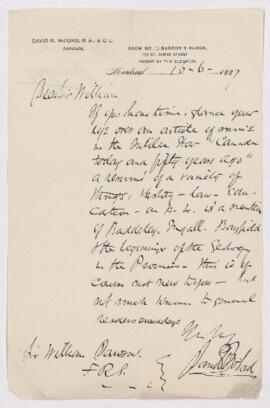 DAVID R. McCORD, B.A., B.C.L.
ADVOCATE.
ROOM No. BARRON'S BLOCK,
ST. JAMES STREET
ASCENT BY THE ELEVATOR.
Montreal 1887
Dear Sir William
If you have time, glance your
eye over an article of mine
in the Star - Canada
today and fifty years ago"
a of a variety of
things, - law - Edu-
cation - is a mention
of Baddeley, Ingall, Bayfield
& the beginnings of the Geology
in the Province - this is of
course not new to you - and
not much known to general
readers nowadays
David R McCord
Sir William Dawson
F.R.S.